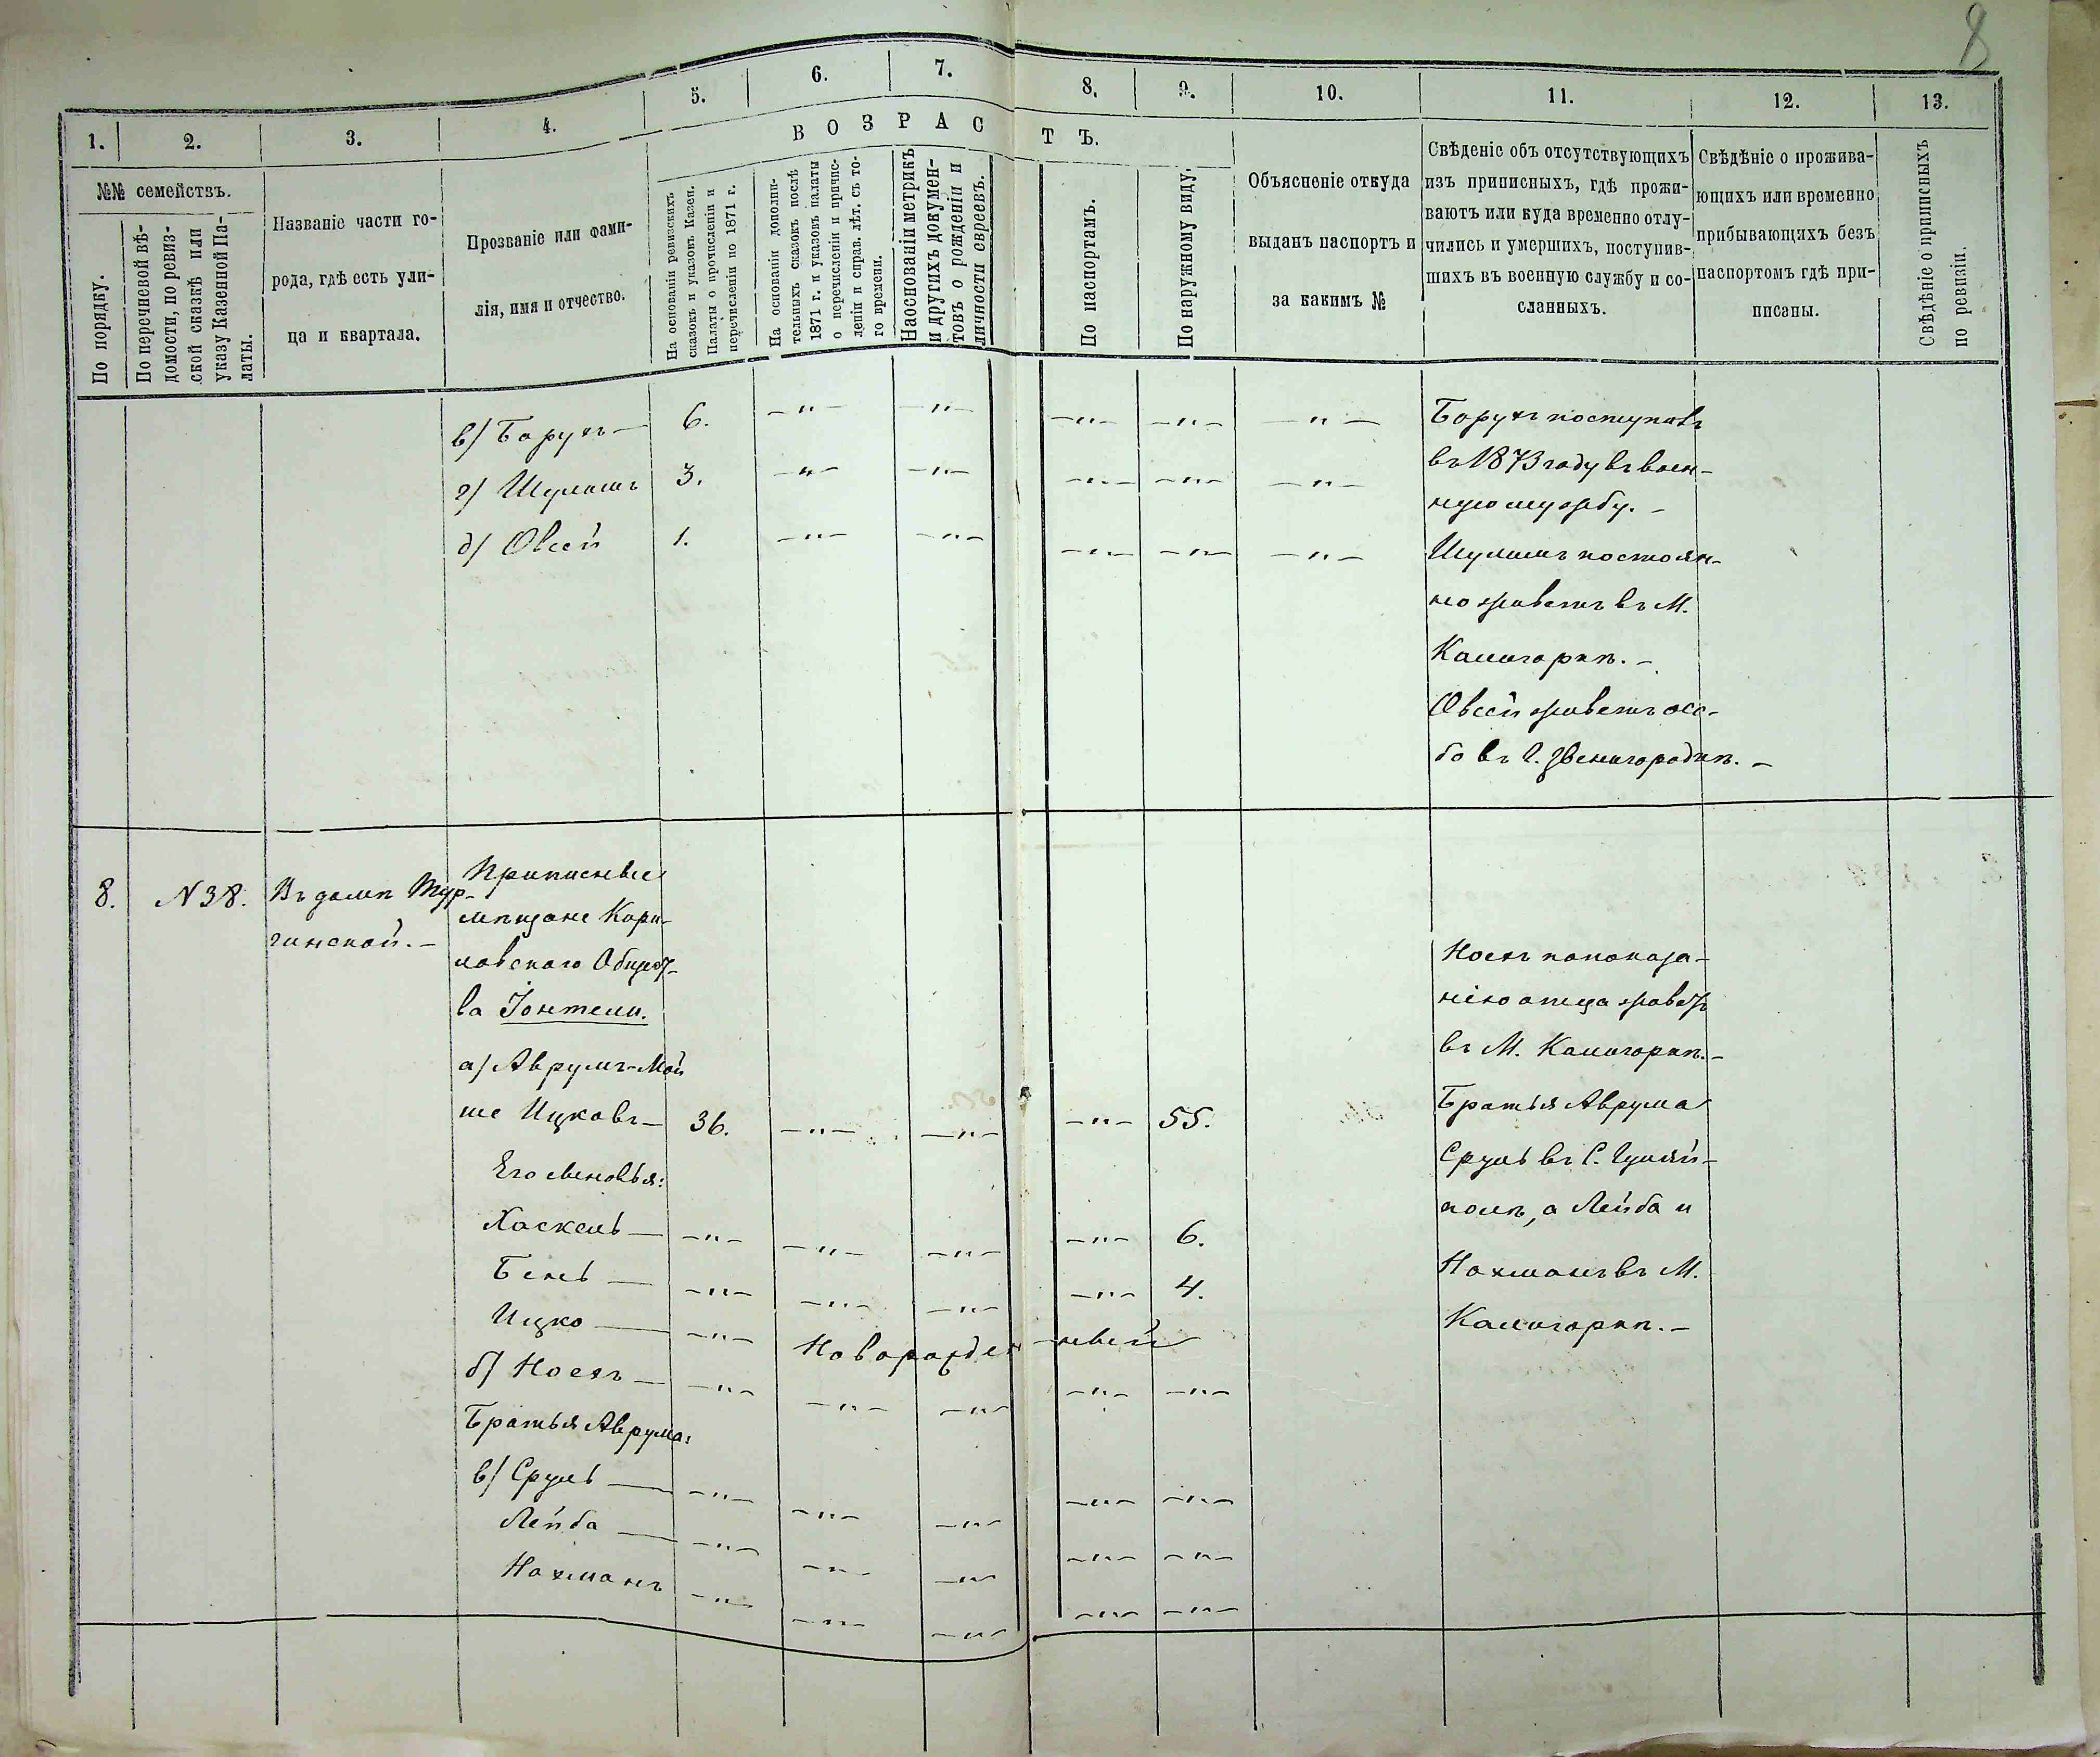 8
1.
2.
3.
4.
5.
6.
7.
8.
9.
10.
11.
12.
13.
№№ семействъ.
По порядку.
По перечневой вѣ-
домости, по ревиз-
ской сказкѣ или
указу Казенной Па-
латы.
Названіе части го-
рода, гдѣ есть ули-
ца и квартала.
Прозваніе или фами-
лія, имя и отчество.
ВОЗРАСТЪ.
На основаніи ревизскихъ
сказокъ и указовъ Казен.
Палаты о прочисленіи и
перечисленіи по 1871 г.
На основаніи дополни-
тельныхъ сказокъ послѣ
1871 г. и указовъ палаты
о перечисленіи и причис-
леніи и справ. лѣт. съ то-
го времени.
На основаніи метрикъ
и другихъ докумен-
товъ о рожденіи и
личности евреевъ.
По паспортамъ.
По наружному виду.
Объясненіе откуда
выданъ паспортъ и
за какимъ №
Свѣденіе объ отсутствующихъ
изъ приписныхъ, гдѣ прожи-
ваютъ или куда временно отлу-
чились и умершихъ, поступив-
шихъ въ военную службу и со-
сланныхъ.
Свѣдѣніе о прожива-
ющихъ или временно
прибывающихъ безъ
паспортомъ гдѣ при-
писаны.
Свѣдѣніе о приписныхъ
по ревизіи.
в) Борухъ — 6. —"— —"— —"— —"— —"—
г) Шулимъ 3. —"— —"— —"— —"— —"—
д) Овсей 1. —"— —"— —"— —"— —"—
Борухъ поступилъ
въ 1873 году въ воен-
ную службу. —
Шулимъ постоян-
но живетъ въ М.
Калигоркѣ. —
Овсей живетъ осо-
бо въ г. Звенигородкѣ. —
8. N 38. Въ домѣ Тур-
чинской. —
Приписные
мѣщане Кири-
ловскаго Общест-
ва Іонтели.
а) Аврумъ-Мой
ше Ицковъ — 36. —"— —"— —"— 55.
Его сыновья:
Хаскель — —"— —"— —"— —"— 6.
Бень — —"— —"— —"— —"— 4.
Ицко — —"— Новорожден-ный
б) Носехъ — —"— —"— —"— —"— —"—
Братья Аврума:
в) Сруль — —"— —"— —"— —"— —"—
Лейба — —"— —"— —"— —"— —"—
Нахманъ —"— —"— —"— —"— —"—
по показа-
нію отца живетъ
въ М. Калигоркѣ. —
Братья Аврума
Сруль въ С. Гуляй-
полѣ, а Лейба и
Нахманъ въ М.
Калигоркѣ. —